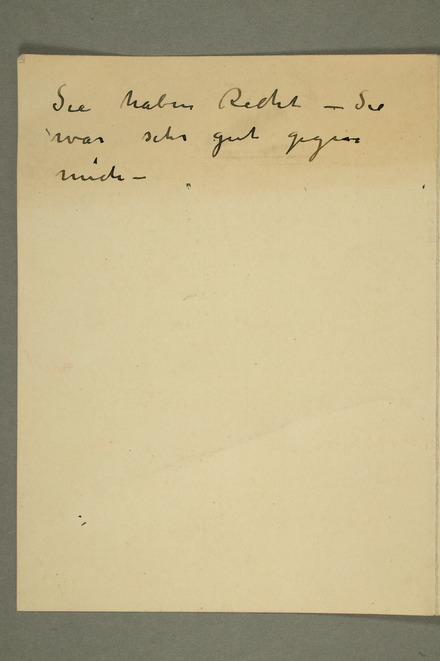 Sie haben Recht – Sie
war sehr gut gegen
mich –